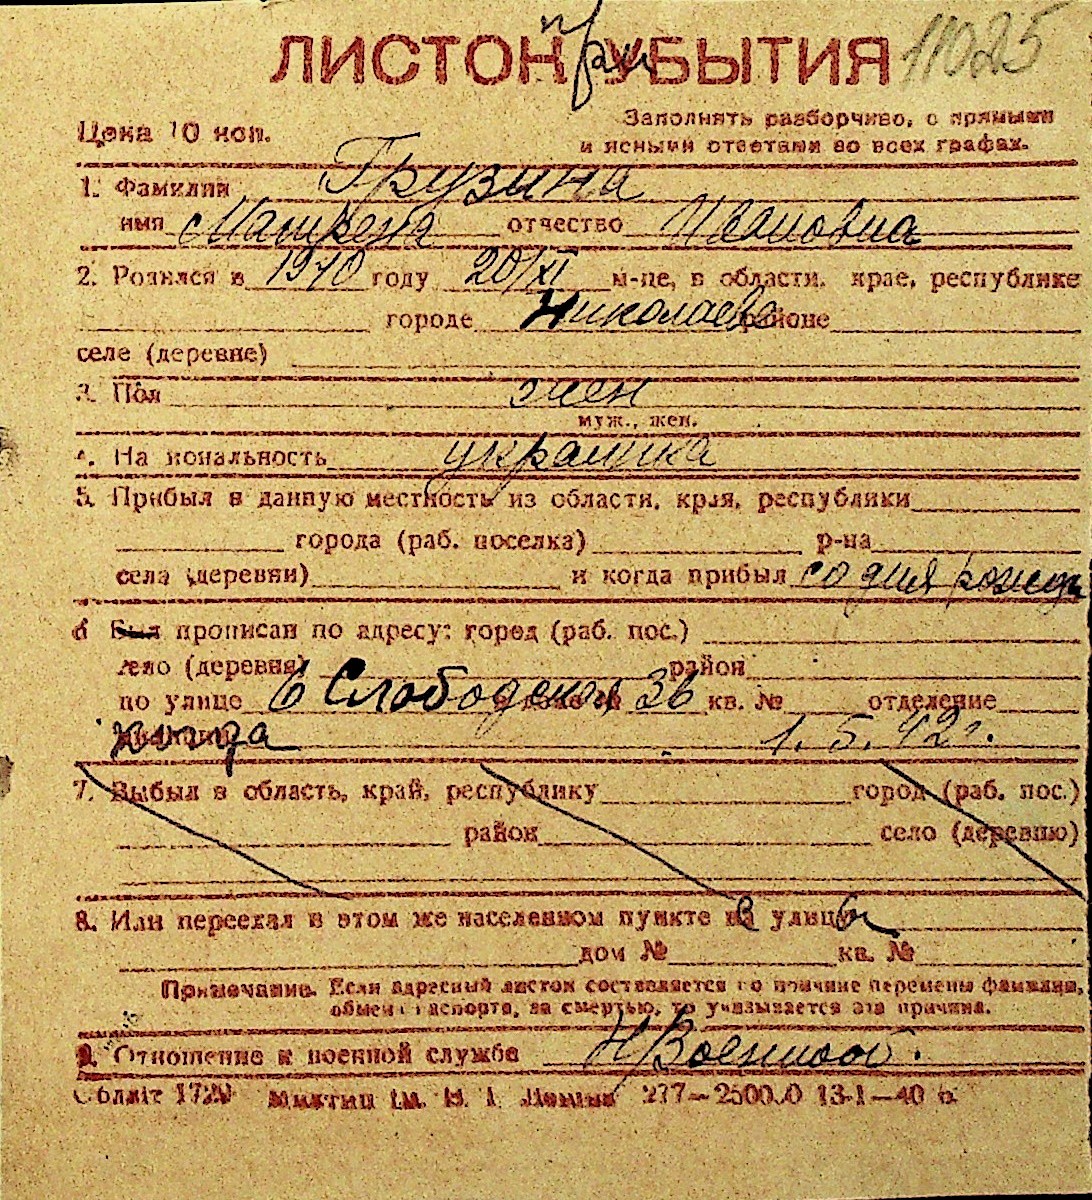 ЛИСТОК УБЫТИЯ 11025
Цена 10 коп.
Заполнять разборчиво, с прямыми
и ясными ответами во всех графах.
1. Фамилия Грузина
имя Матрена отчество Ивановна
2. Родился в 1910 году 20/XI м-це, в области, крае, республике
городе Николаеве районе
селе (деревне)
3. Пол жен
муж., жен.
4. Национальность украинка
5. Прибыл в данную местность из области, края, республики
города (раб. поселка) р-на
села (деревни) и когда прибыл со дня рожд
6 Был прописан по адресу: город (раб. пос.)
село (деревня) район
по улице 6 Слободская 36 кв. № отделение
1.5.42 г.
7. Выбыл в область, край, республику город (раб. пос.)
район село (деревню)
8. Или переехал в этом же населенном пункте на улицу
дом № кв. №
Примечание. Если адресный листок составляется по причине перемены фамилии,
обмен паспорта, за смертью, то указывается эта причина.
9. Отношение к военной службе Н/Военнооб.
Обліт 1729 277—25000 13-1—40 р.